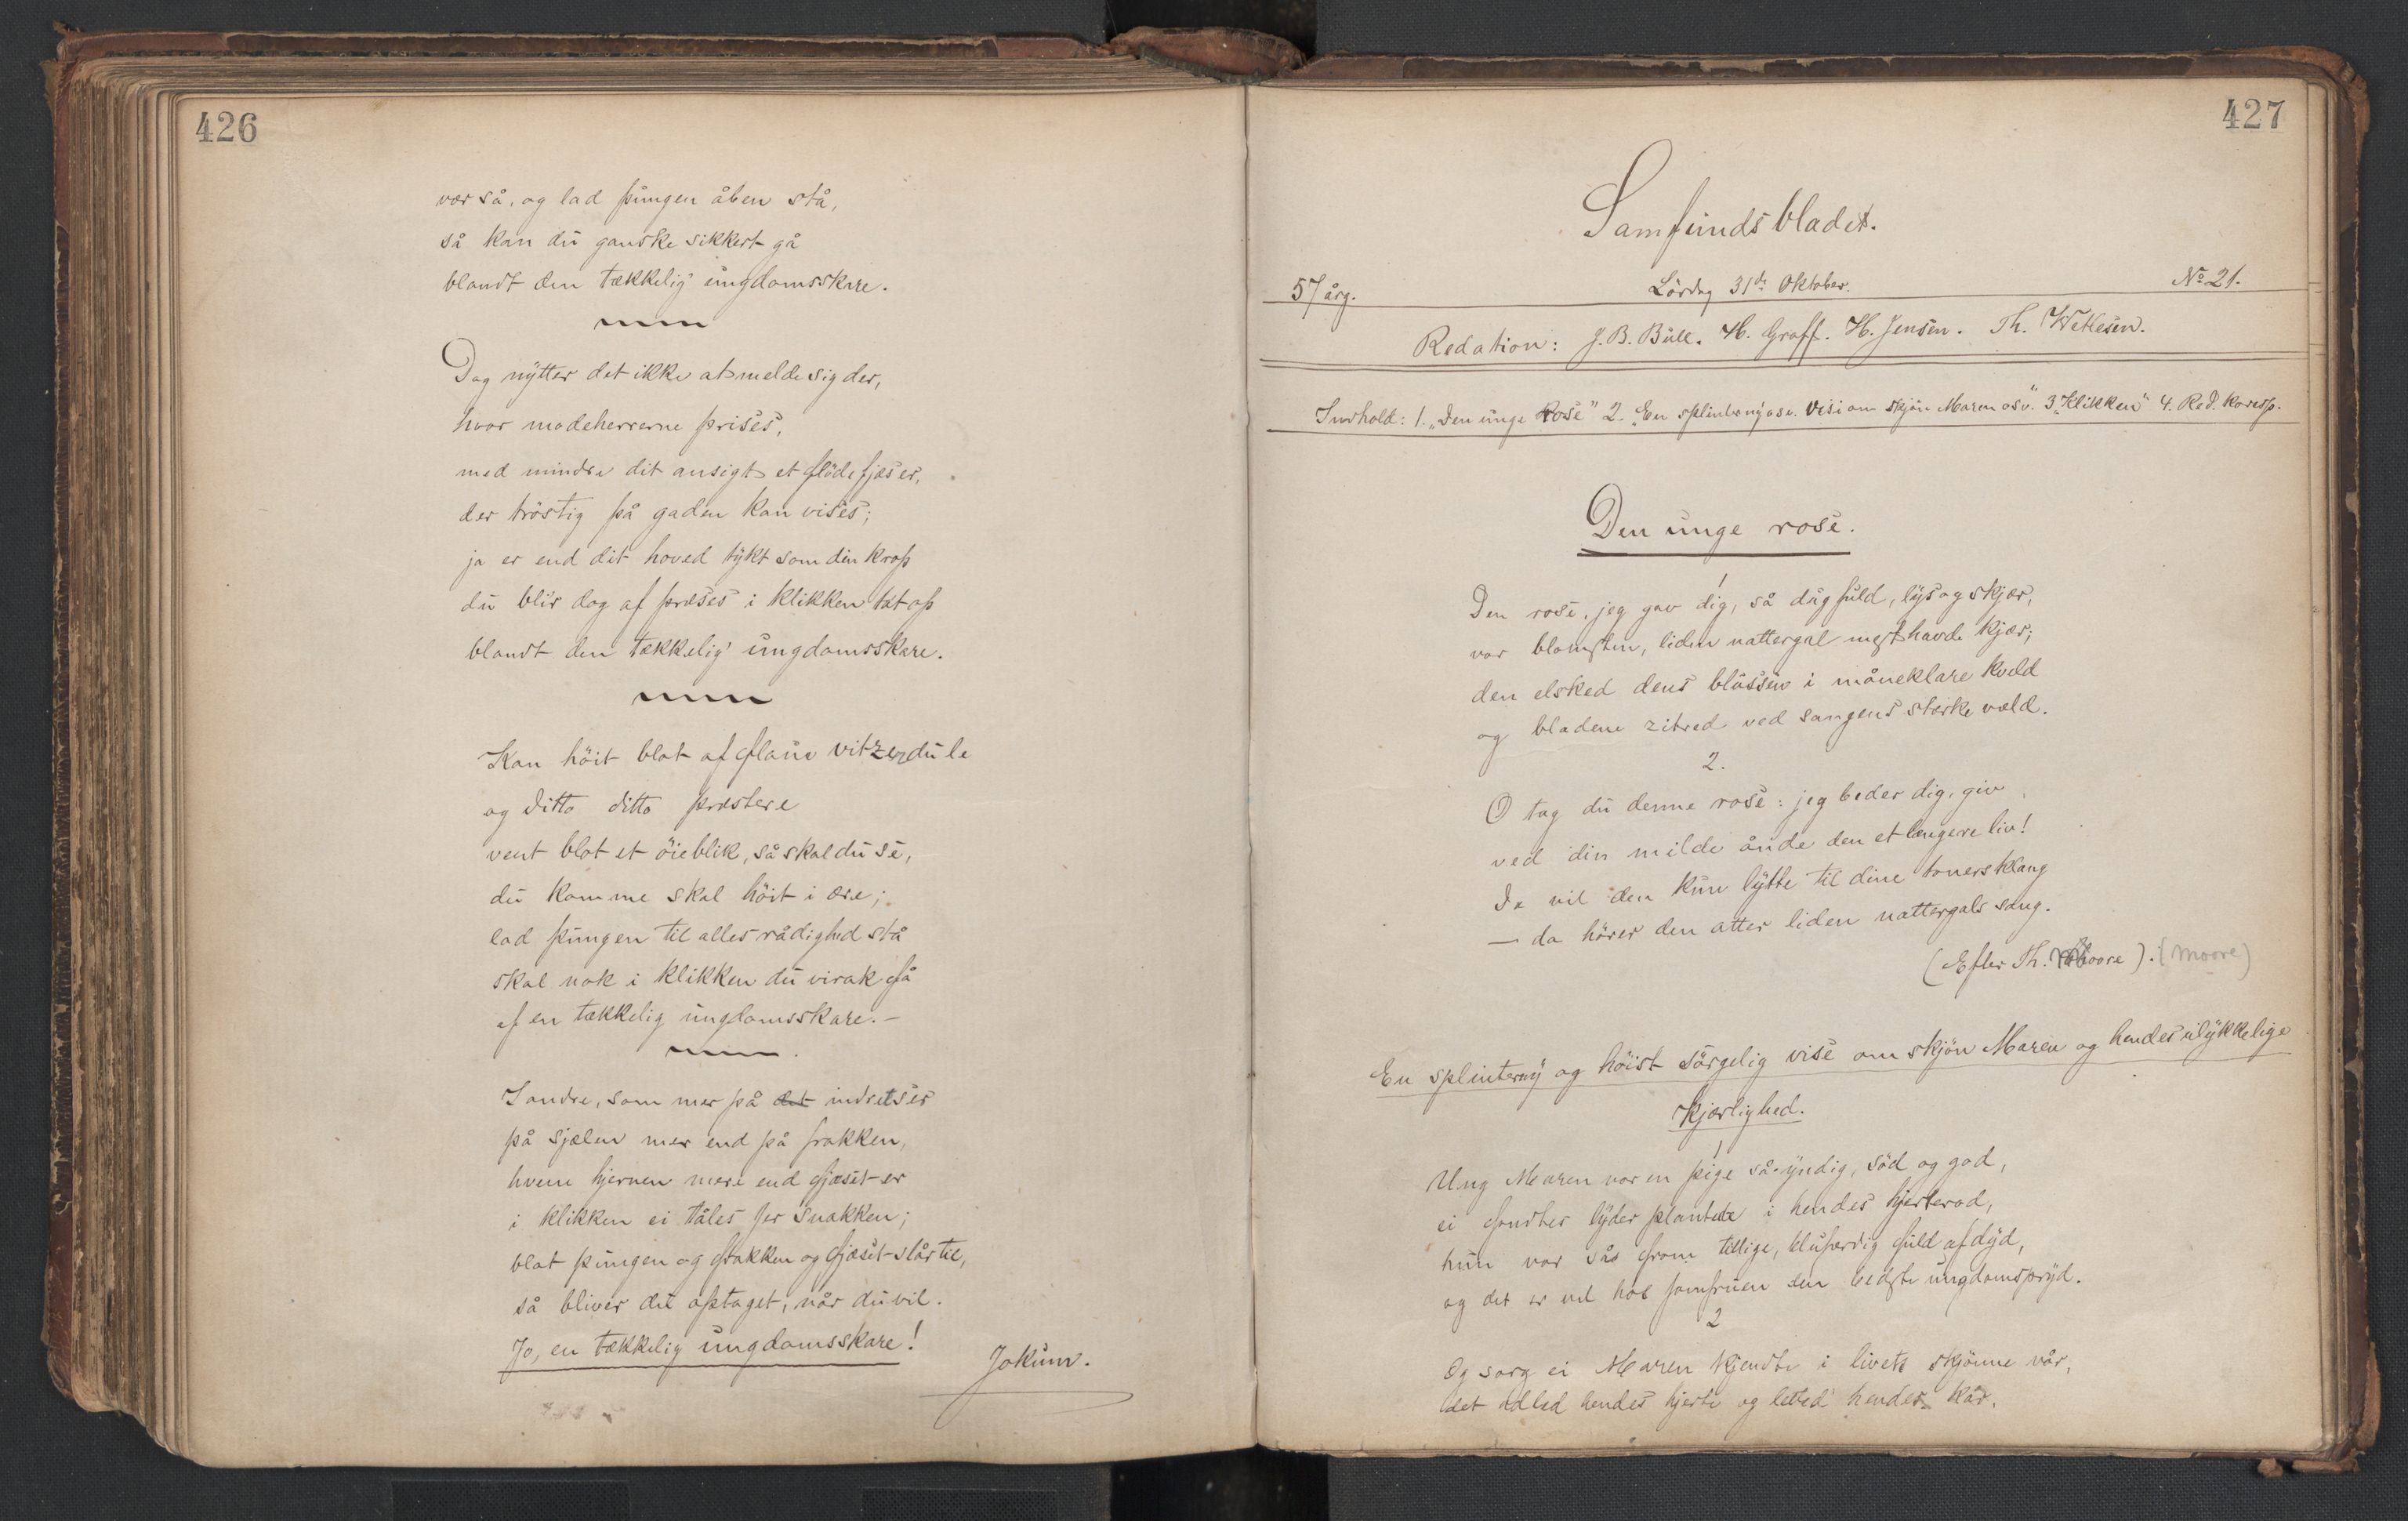 426
vær så, og lad pungen åben stå,
så kan du ganske sikkert gå
blandt den tækkelig' ungdomsskare.
Dog nytter det ikke at melde sig der,
hvor modeherrerne prises,
med mindre dit ansigt et flödefjæs er,
der tröstig på gaden kan vises;
ja er end dit hoved tykt som din krop
du blir dog af præses i klikken tat op
blandt den tækkelig' ungdomsskare.
Kan höit blot af flaue vitzer du le
og ditto ditto præstere
vent blot et öieblik, så skal du se,
du komme skal höit i ære;
lad pungen til alles rådighed stå
skal nok i klikken du virak få
af en tækkelig ungdomsskare.-
I andre, som mer på det indre ser
på sjælen mer end på frakken,
hvem hjernen mere end fjæset er
i klikken ei tåles for snakken;
blot pungen og frakken og fjæset slår til,
så bliver du optaget, når du vil.
Jo, en tækkelig ungdomsskare!
Jokum.
427
Samfundsbladet.
57 årg. Lördag 31de Oktober. No 21.
Redaktion: J. B. Bull. H. Graff. H. Jensen. Th. Wetlesen.
Indhold: 1. „Den unge Rose" 2. „En splinterny osv. Visi om skjön Maren osv." 3 „Klikken" 4. Red. Koresp.
Den unge rose.
1
Den rose, jeg gav dig, så dugfuld, lys og skjær,
var blomsten, liden nattergal mest havde kjær;
den elsked dens blussen i måneklare kveld
og bladene zitred ved sangens stærke væld.
2.
O tag du denne rose: jeg beder dig, giv
ved din milde ånde den et længere liv!
Da vil den kun lytte til dine toners klang
— da hörer den atter liden nattergals sang.
(Efter Th. Moore). (Moore)
En splinterny og höist sörgelig vise om skjön Maren og hendes ulykkelige
kjærlighed.
1
Ung Maren var en pige så yndig, söd og god,
ei fandtes lyder plantede i hendes hjerterod,
hun var så from tillige, blufærdig fuld af dyd,
og det er vel hos jomfruen den bedste ungdomspryd.
2
Og sorg ei Maren kjendte i livets skjönne vår,
det adled hendes hjerte og letted hendes kår.